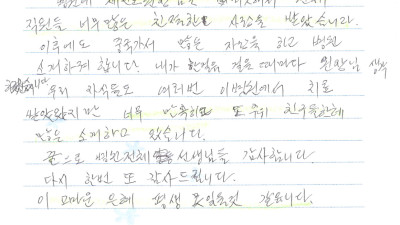 직원들 너무 많은 친절한 사랑을 받았습니다.
이후에도 중국가서 많은 자인을 하고 병원
소개하려 합니다. 내가 한걸음 걸을 때마다 원장님 생각
우리 자식들도 여러번 이병원에서 치료
받았었지만 너무 만족하고 또 주위 친구들한테
많은 소개하고 있습니다.
끝으로 병원전체 선생님들 감사합니다.
다시 한번 또 감사드립니다.
이 고마운 은혜 평생 못잊을것 같습니다.